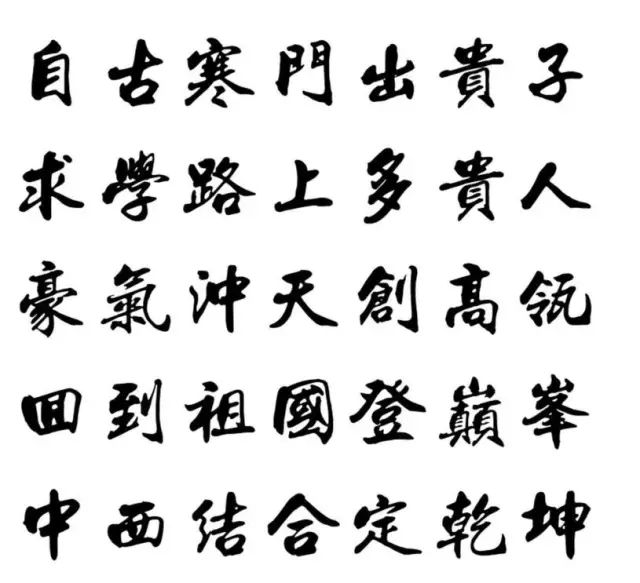 自古寒門出貴子
求學路上多貴人
豪氣沖天創高瓴
回到祖國登巔峯
中西結合定乾坤